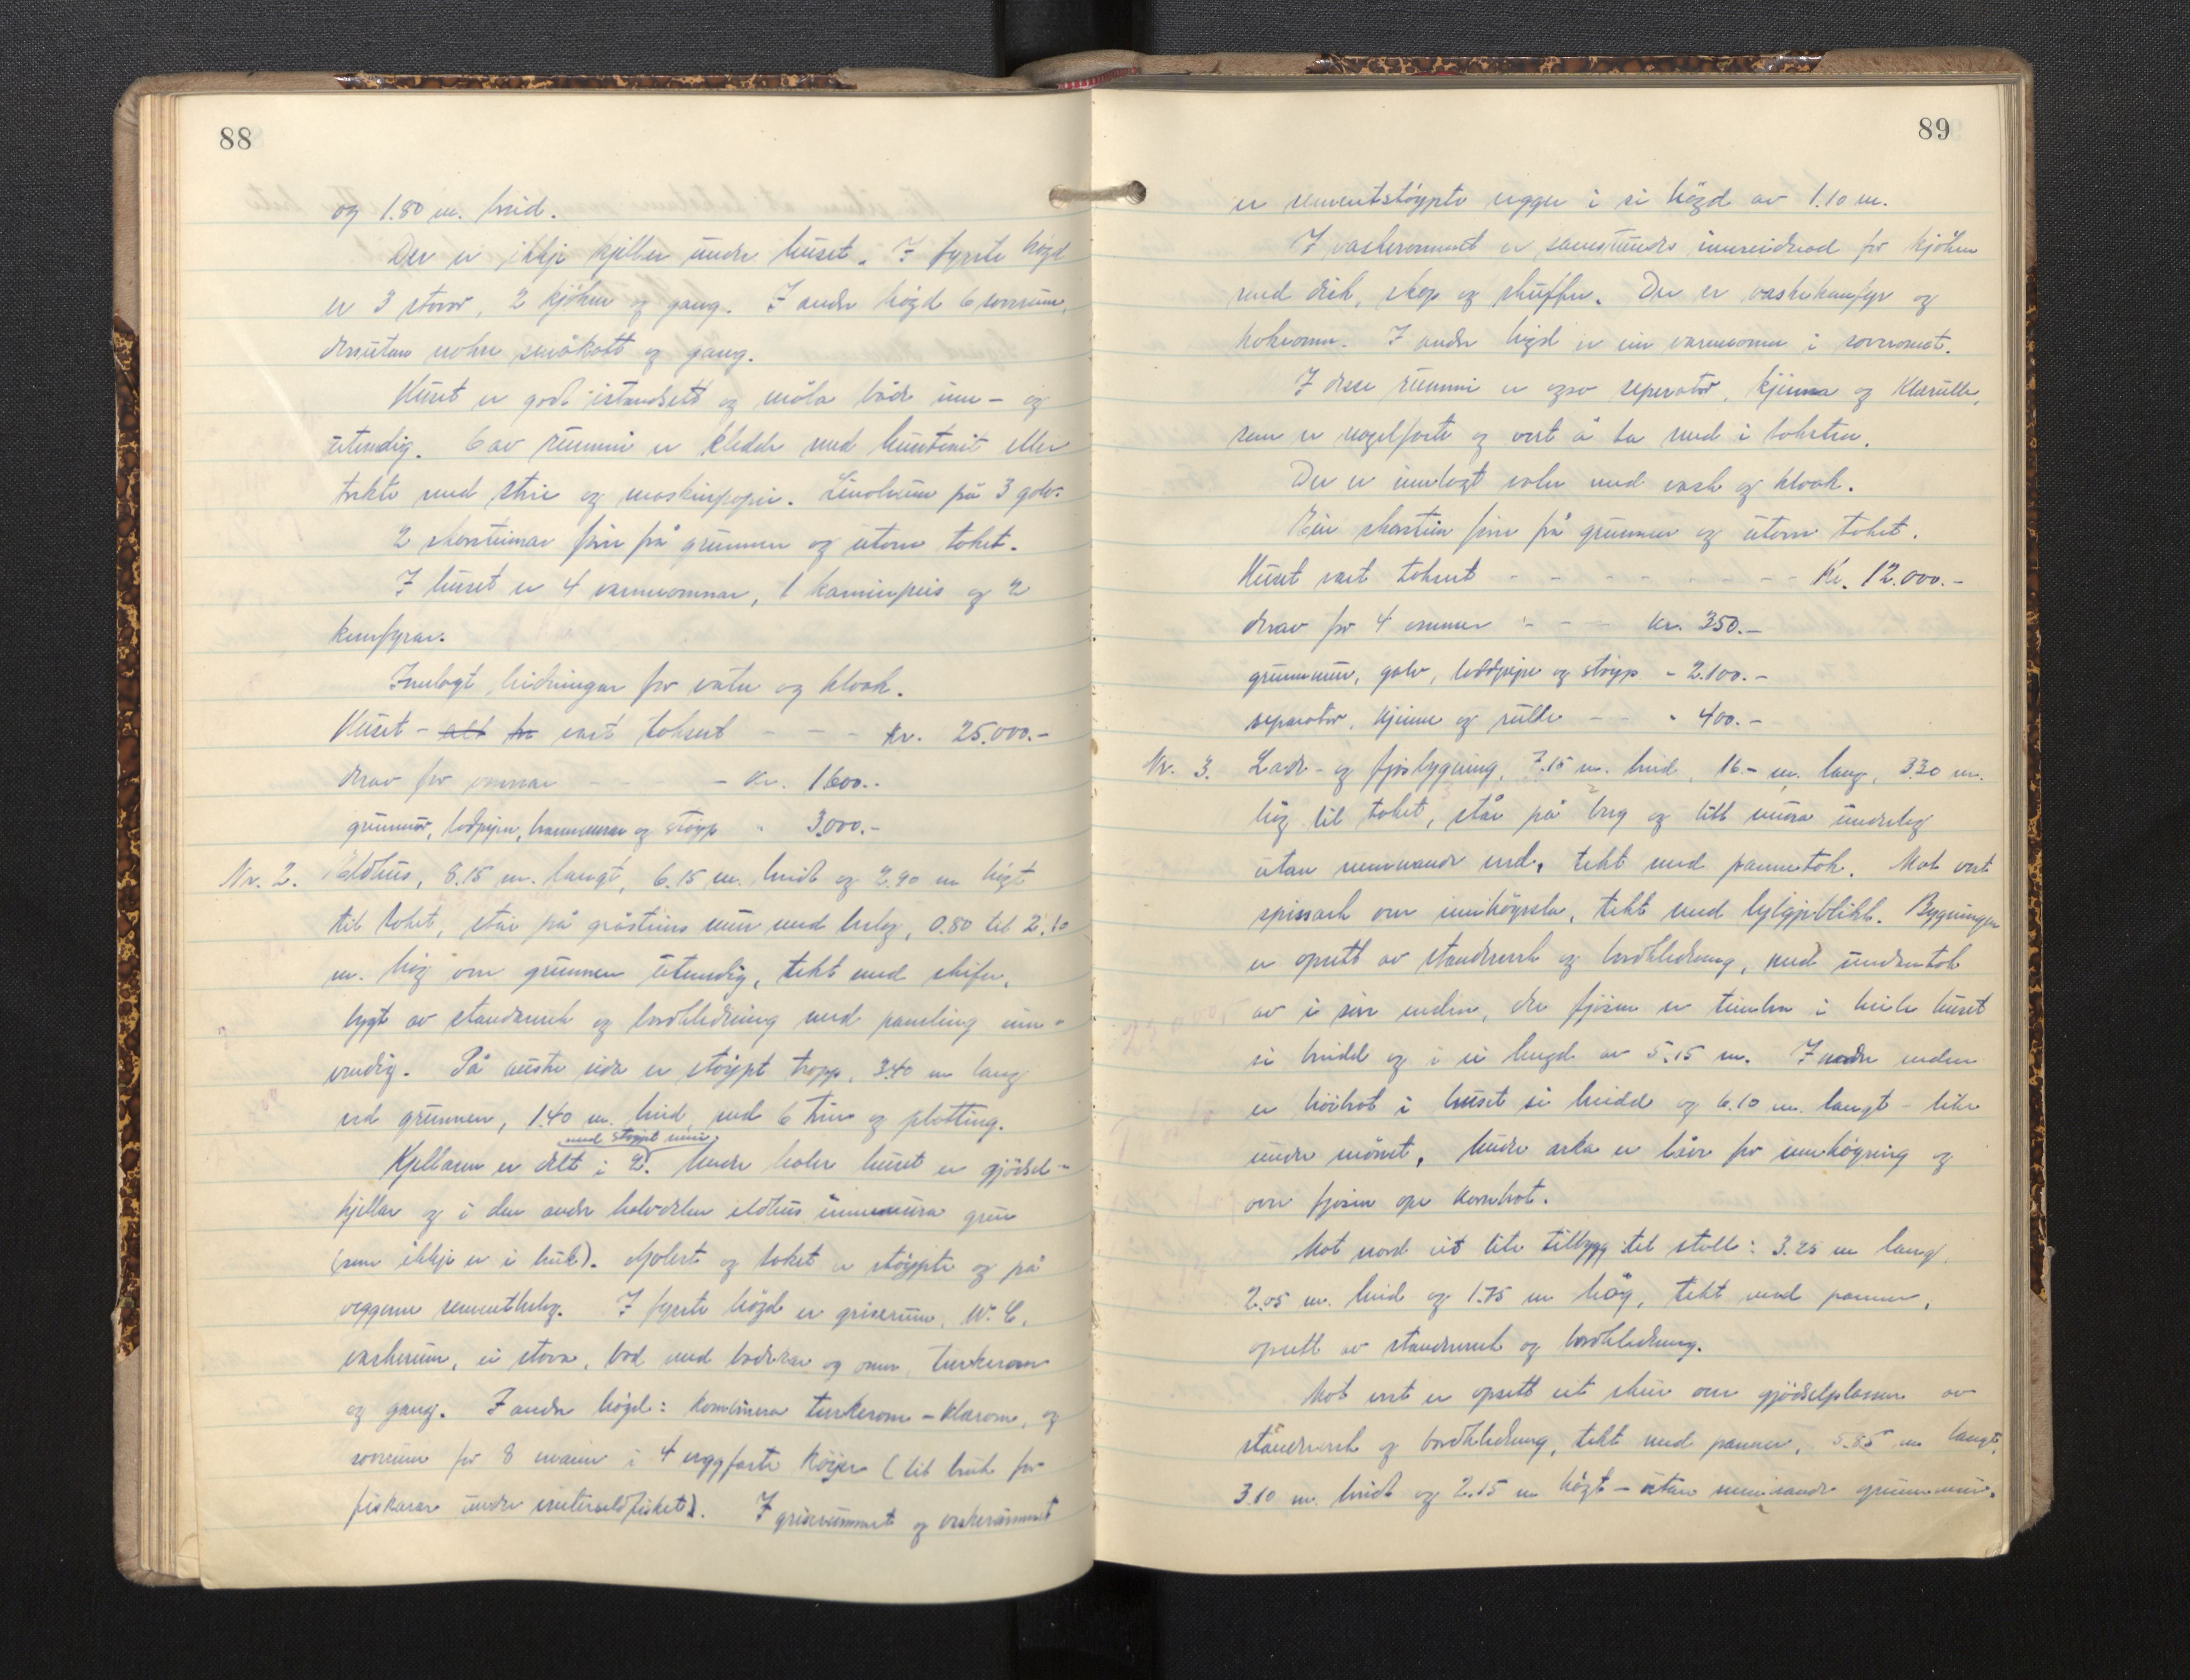 88
og 1.80 m. breid.
Der er ikkje kjeller under huset. I fyrste högd
er 3 stovor, 2 kjöken og gang. I andre högd 6 soverum,
dessutan nokre småkott og gang.
Huset er godt istandsett og måla både inn- og
utvendig. 6 av rummi er kledde med huntonit eller
trekte med strie og maskinpapir. Linoleum på 3 golv.
2 skorsteinar fire frå grunnen og utover taket.
I huset er 4 varmeomnar, 1 kaminpeis og 2
komfyrar.
Innlagt leidningar for vatn og kloak.
Huset - alt for vart taksert - - - Kr. 25.000.-
Drav for omnar - - - - Kr. 1600.-
grunnmur, lodpipor, brannmurar og stöyp " 3.000.-
Nr. 2. Eldhus, 8.15 m. langt, 6.15 m. breidt og 2.90 m högt
til taket, står på gråsteins mur med beleg, 0.80 til 2.10
m. hög over grunnen utvendig, tekt med skifer,
bygt av standverk og bordkledning med paneling inn-
vendig. På austre sida er stöypt tropp, 3.40 m lang
ved grunnen, 1.40 m. breid, med 6 trin og platting.
med stöypt mur
Kjellaren er delt i 2. Under halve huset er gjödsel-
kjellar og i den andre halvdelen eldhus innmura grue
(som ikkje er i bruk). Golvet og taket er stöypte og på
veggerne sementbeleg. I fyrste högd er griserum, W.C.
vaskerum, ei stova, bad med badekar og omn, turkerom
og gang. I andre högd: kombinera turkerom - klærom, og
soverum for 8 mann i 4 veggfaste köyer (til bruk for
fiskarar under vintersildfisket). I griserummet og vaskerummet
89
er sementstöypte vegger i ei högd av 1.10 m.
I vaskerommet er samstundes innreidnad for kjöken
med disk, skap og skuffer. Der er vaskekomfyr og
kokeomn. I andre högd er ein varmeomn i soverommet.
I desse rummi er ogso seperator, kjinna og klærulle,
som er nagelfaste og vert å ta med i taksten.
Der er innlagt vatn med vask og kloak.
Ein skorstein fire frå grunnen og utover taket.
Huset vart taksert - - - - - - - - Kr. 12.000.-
drav for 4 omner - - - Kr. 350.-
grunnmur, golv, loddpipe og stöyp " 2.100.-
separator, kjinne og rulle - - " 400.-
Nr. 3. Lade- og fjösbygning, 7.15 m. breid, 16.- m. lang, 3.30 m.
hög til taket, står på berg og litt mura underlag
utan nemnande verd, tekt med pannetak. Mot vest
spissark over innhögsla, tekt med bylgjeblikk. Bygningen
er oppsett av standverk og bordkledning, med undantak
av i söre enden, der fjösen er timbra i heile huset
si breidd og i ei lengd av 5.15 m. I nordre enden
er höibrot i huset si breidd og 6.10 m. langt - like
under mönet. Under arka er låve for innhögning og
over fjösen ope kornbrot.
Mot nord eit lite tilbygg til stall: 3.25 m lang,
2.05 m. breid og 1.75 m hög, tekt med panner,
opsett av standverk og bordkledning.
Mot vest er opsett eit skur over gjödselplassen av
standverk og bordkledning, tekt med panner, 5.85 m langt,
3.10 m. breidt og 2.15 m högt - utan nemnande grunnmur.